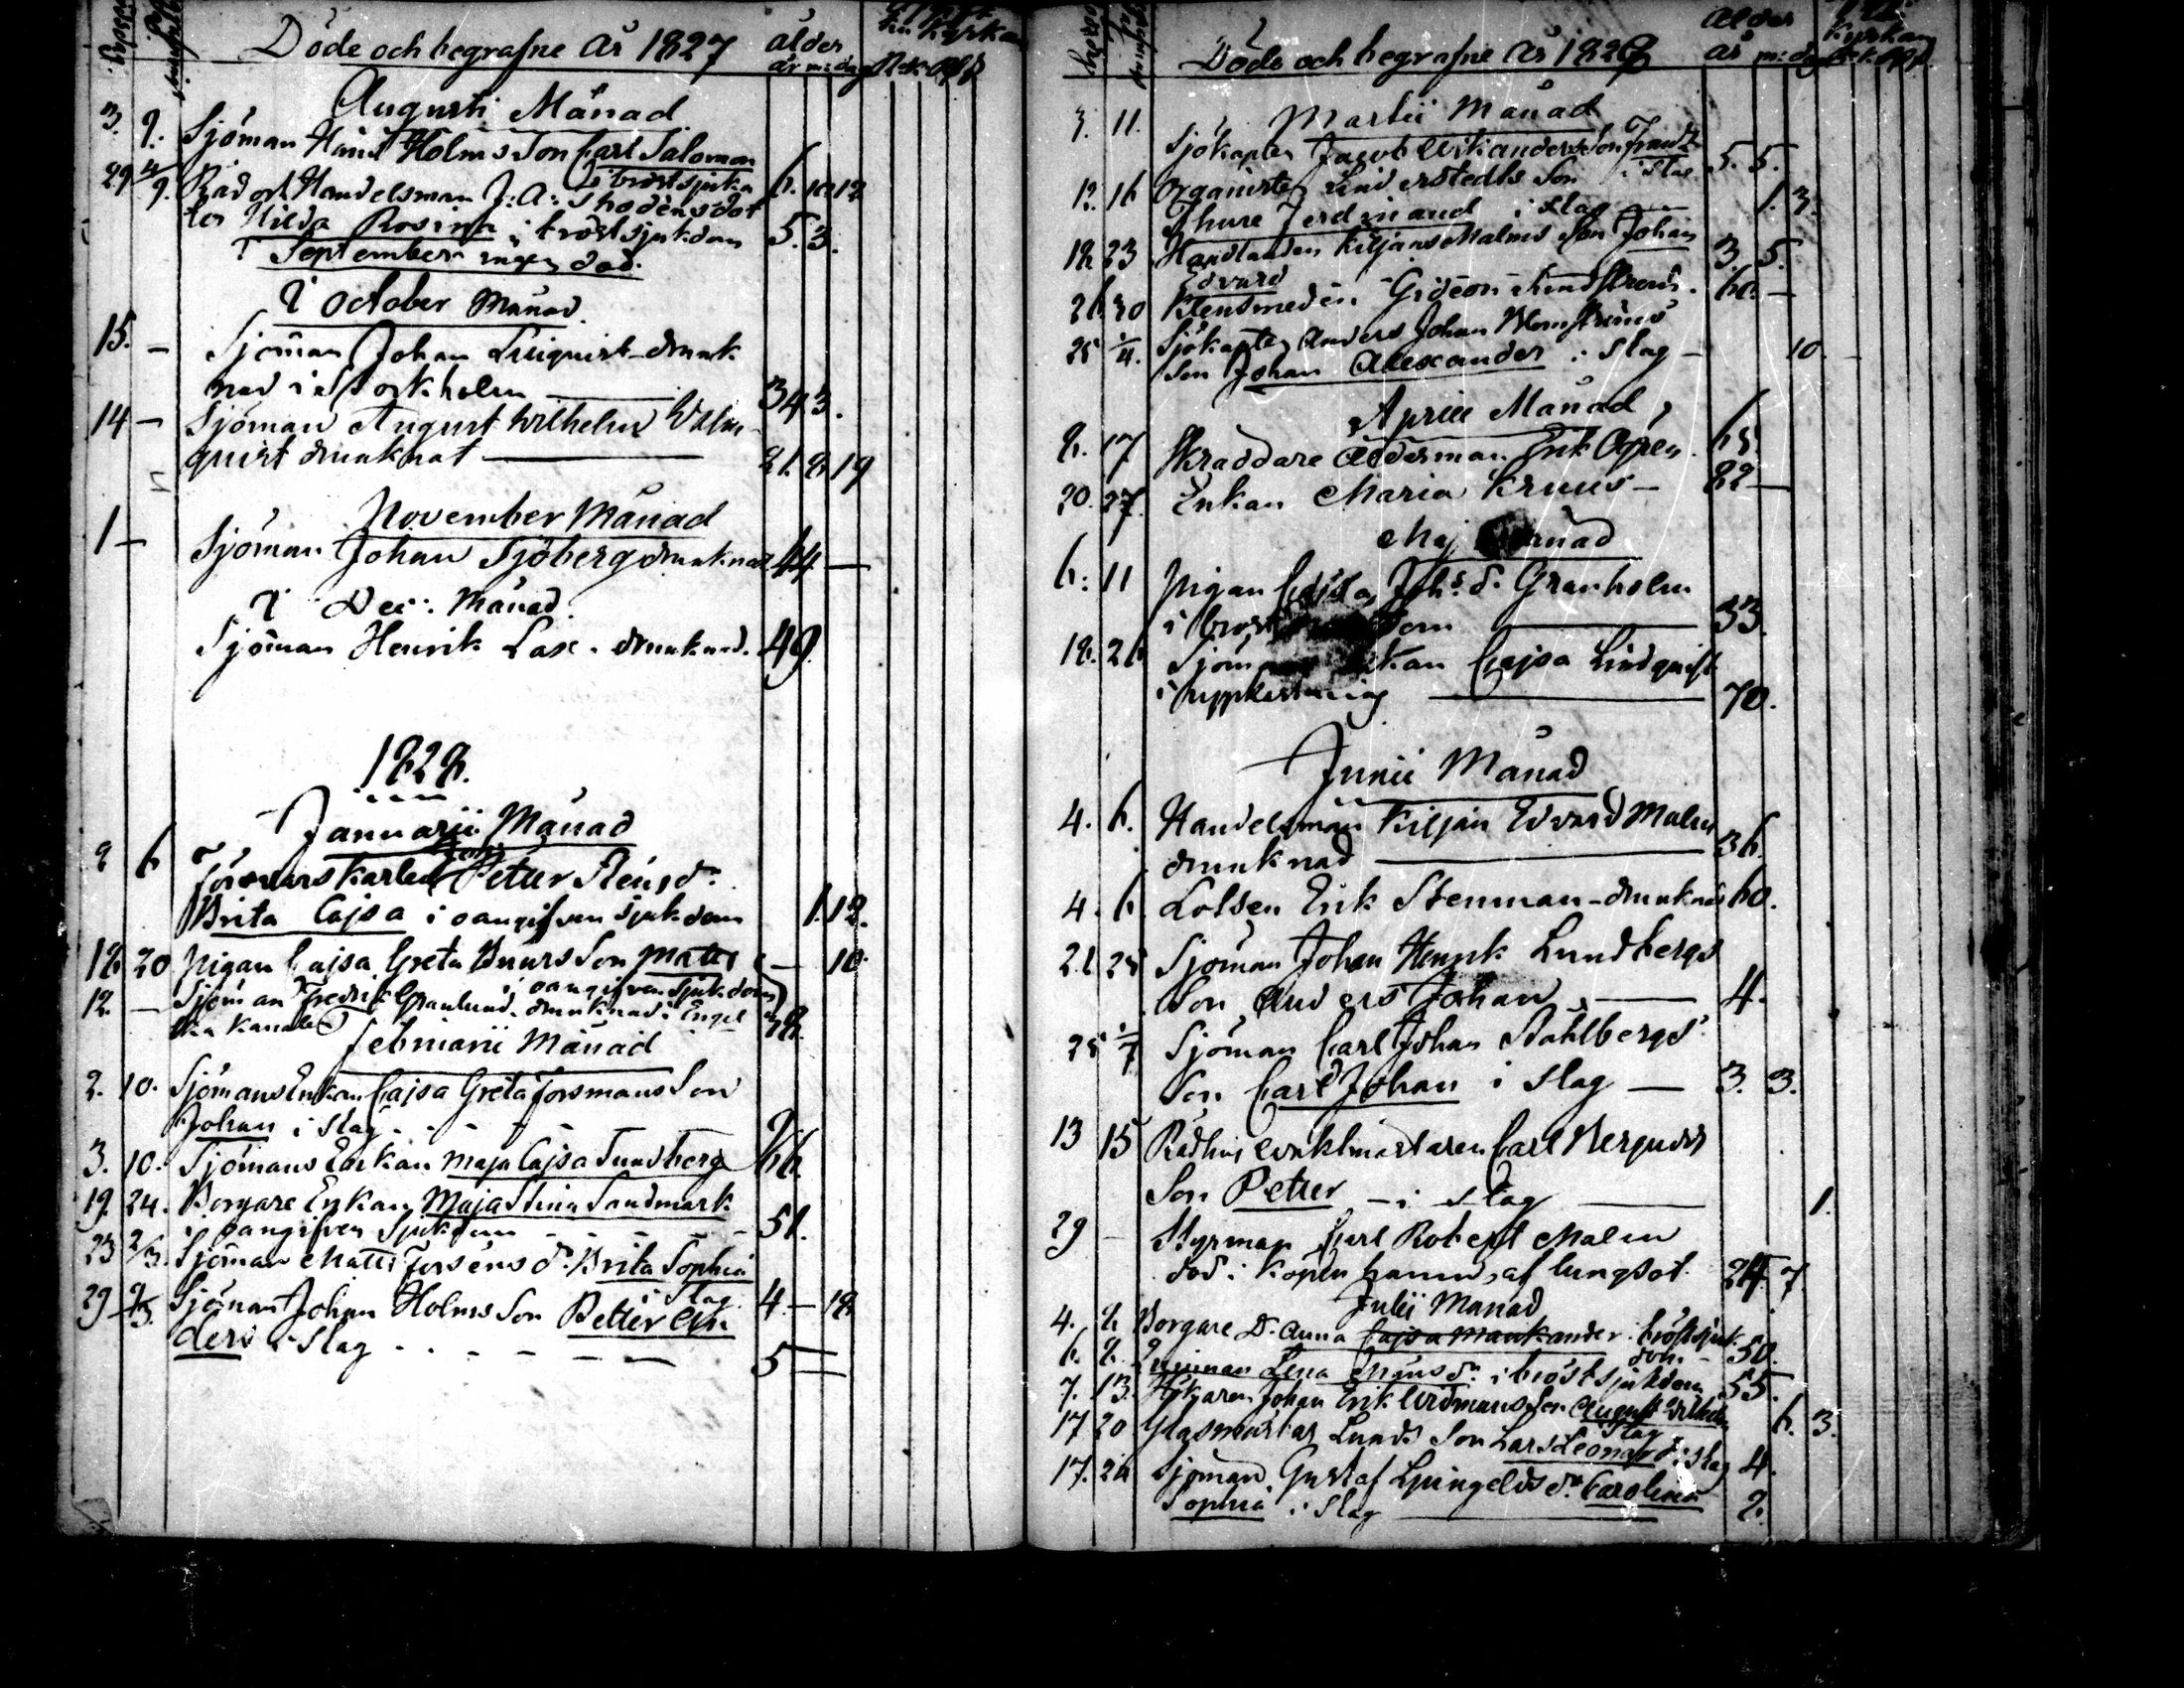 Döde och begrafne År 1827 ålder
år m: dag
Augusti Månad
3. 9. Sjöman Hans Holms Son Carl Salomon
i bröstsjuka 6. 10 12
29 4/9. Råd och Handelsman J: A: dot
ter Hilda Rosina i bröstsjukdom 5. 3.
I September ingen död.
I October Månad
15. — Sjöman Johan drunk
nad i Stockholm 34 3.
14 — Sjöman August Wilhelm
quist drunknat 21. 8 19
November Månad
1 — Sjöman Johan Sjöberg drunknad 44 —
I Dec: Månad
Sjöman Henrik Lax. drunknad. 49.
1828.
Januarii Månad
2 6 Försvars Karlen Petter
Brita Cajsa i oangifven sjukdom 1. 12.
18 20 pigan Cajsa Greta Son Matts — 10.
i oangifven sjukdom
12. — Sjöman Fredrik Granlund. drunknad i Engel
ska Kanalen 38.
Februarii Månad
2. 10. Sjömans Enkan Cajsa Greta Forsmans Son
Johan i Slag. 9.
3. 10. Sjömans Enkan Maja Cajsa Sundberg 66.
19. 24. Borgare Enkan Maja Stina Sandmark
i oangifven Sjukdom 51.
23 2/3. Sjöman Matts Forséns dr Brita Sophia
i Slag. 4 — 18
29 9/3. Sjöman Johan Holms Son Petter An
ders i Slag 5 —
Döde och begrafne År 1828 Ålder
år m: dag
Martii Månad
3. 11. Sjökapten Jacob Wikanders Son Frans
i Slag 5. 5.
12. 16 Organisten Linderstedts Son
Thure Ferdinand i Slag — 1. 3.
18 23 Handlanden Kiljans Malms Son Johan
Edvard 3. 5.
26 30 Klensmeden Gideon Lindström. 60. —
25 1/4. Sjökapten Anders Johan Blomströms
Son Johan Alexander i Slag — 10. —
Aprill Månad
8. 17 Skräddare Ålderman Erik Ogren. 65.
20. 27. Enkan Maria Kruus — 82 —
Maj Månad
6: 11 pigan Cajsa Johs d. Granholm
i 33.
18. 26 Cajsa Lindquist
i 70.
Junii Månad
4. 6. Handelsman Kiljan Edvard Malm
drunknad 36.
4. 6. Lotsen Erik Stenman — drunknad 60.
21 25 Sjöman Johan Henrik Lundbergs
Son Anders Johan 4.
25 1/7 Sjöman Carl Johan Ståhlbergs
Son Carl Johan i Slag — 3. 3.
13 15 Rådhus Waktmästaren Carl
Son Petter — i Slag 1.
29 — Styrman Carl Robert Malm
död i Köpenhamn, af lungsot. 24. 7.
Julii Månad
4. 8 Borgare D. Anna Cajsa bröstsjuk
dom — 50.
6. 8. Qvinnan Lena dr i bröstsjukdom 55.
7. 13. Johan Erik Widmans Son August Wilhelm
i Slag 6. 3.
17 20 Glasmästar Lunds Son Lars Leonard i Slag 4.
17. 24 Sjöman Gustaf Ljungelds dr Carolina
Sophia i Slag 2.